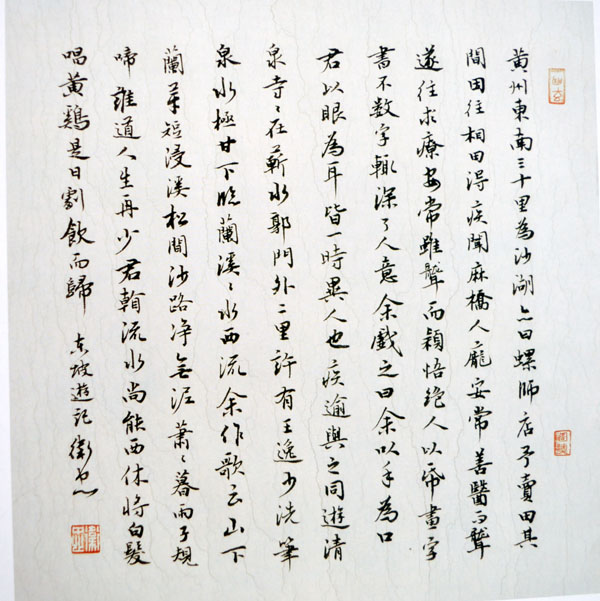 黄州東南三十里為沙湖亦曰螺師店予賣田其
間因往相田淂疾聞麻橋人龐安常善醫而聾
遂往求療安常雖聾而穎悟絶人以帋畫字
書不数字輒深了人意余戲之曰余以手為口
君以眼為耳皆一時異人也疾逾與之同遊清
泉寺〻在蘄水郭門外二里許有王逸少洗筆
泉水極甘下臨蘭溪〻水西流余作歌云山下
蘭芽短浸溪松間沙路浄無泥蕭〻暮雨子規
啼誰道人生再少君看流水尚能西休将白髮
唱黄鷄是日劇飲而歸 東坡遊記